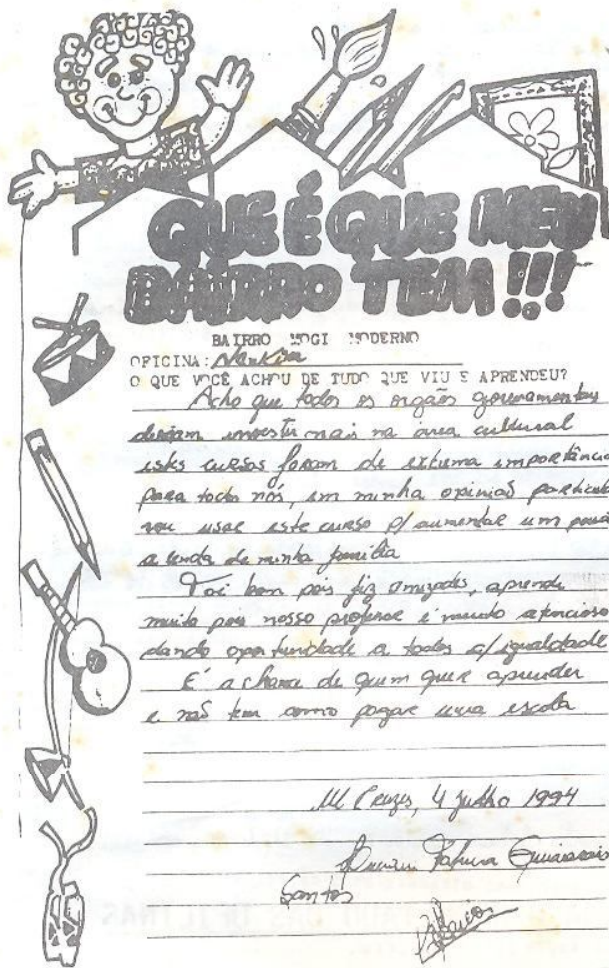 QUE É QUE MEU
BAIRRO TEM!!!
BAIRRO MOGI MODERNO
OFICINA: Nankim
O QUE VOCÊ ACHOU DE TUDO QUE VIU E APRENDEU?
Acho que todos os orgãos governamentais
deviam investir mais na área cultural
estes cursos foram de extrema importância
para todos nós, em minha opinião particular
vou usar este curso p/ aumentar um pouco
a renda de minha família
Foi bom pois fiz amizades, aprendi
muito pois nosso professor é muito atencioso
dando oportunidade a todos c/ igualdade
É a chance de quem quer aprender
e não tem como pagar uma escola
M Cruzes, 4 Junho 1994
Guimarais
Santos